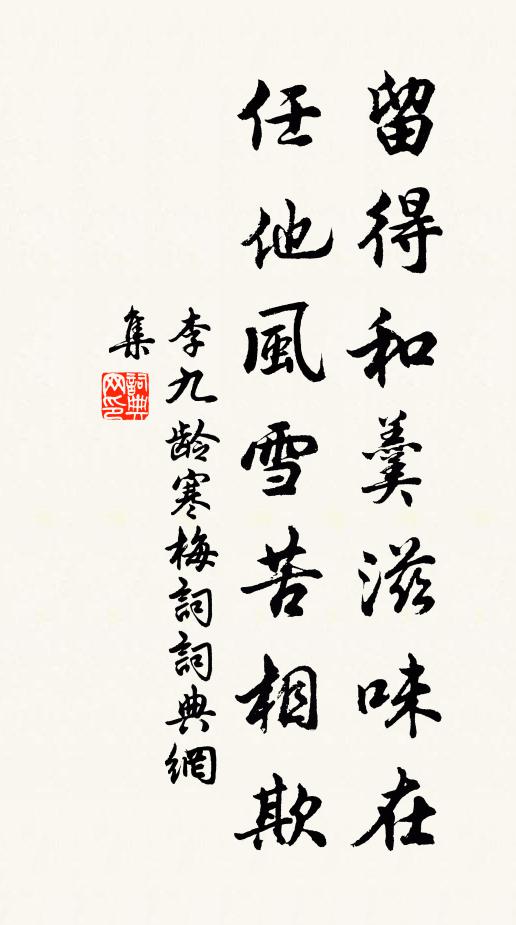 留得和羹滋味在
任他風雪苦相欺
李九齡寒梅詞詞典網
集
詞典
网印